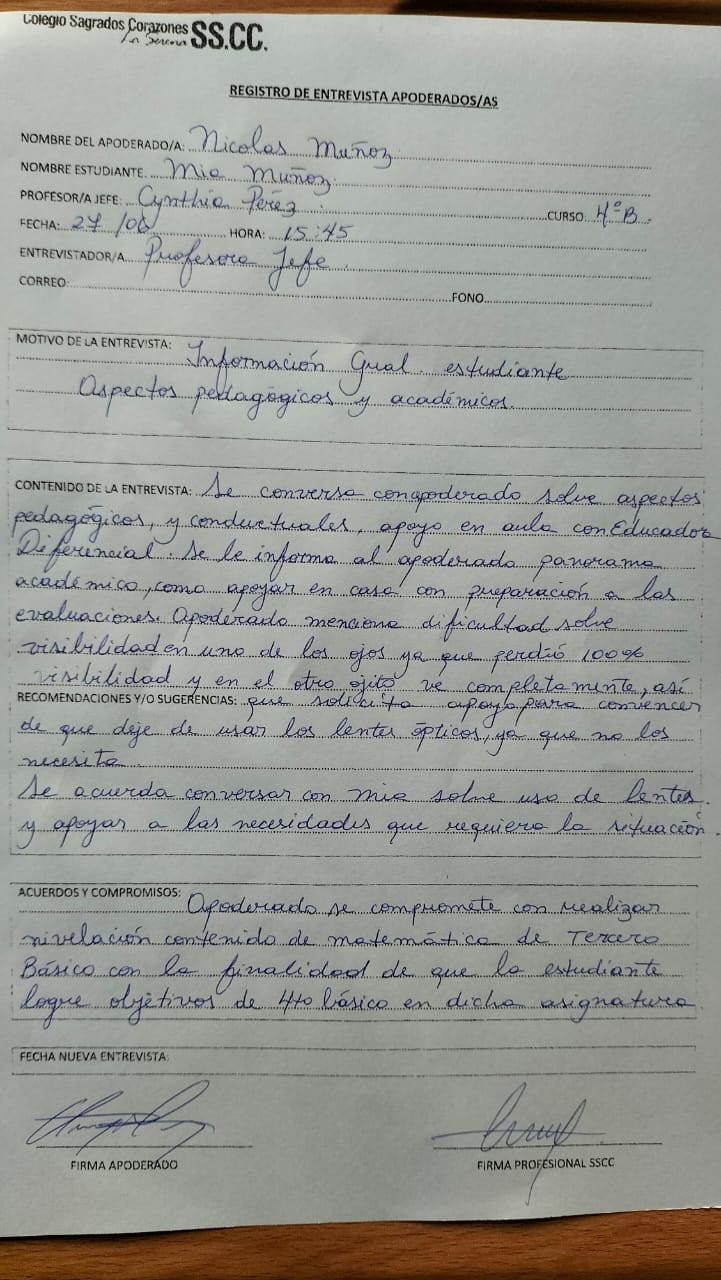 Colegio Sagrados Corazones
La Serena SS.CC.
REGISTRO DE ENTREVISTA APODERADOS/AS
NOMBRE DEL APODERADO/A: Nicolas Muñoz
NOMBRE ESTUDIANTE. Mia Muñoz
PROFESOR/A JEFE: Cynthia Pérez CURSO. 4°B.
FECHA: 27/06 HORA: 15:45
ENTREVISTADOR/A Profesora Jefe
CORREO: FONO
MOTIVO DE LA ENTREVISTA: Información Gual. estudiante
Aspectos pedagógicos y académicos.
CONTENIDO DE LA ENTREVISTA: Se conversa con apoderado sobre aspectos
pedagógicos, y conductuales, apoyo en aula con Educador
Diferencial. Se le informa al apoderado panorama
académico, como apoyar en casa con preparación a las
evaluaciones. Apoderado menciona dificultad sobre
visibilidad en uno de los ojos ya que perdió 100%
visibilidad y en el otro ojito ve completamente, así
RECOMENDACIONES Y/O SUGERENCIAS: que solicita apoyo para convencer
de que deje de usar los lentes ópticos, ya que no los
necesita
Se acuerda conversar con Mia sobre uso de lentes.
y apoyar a las necesidades que requiera la situación.
ACUERDOS Y COMPROMISOS: Apoderado se compromete con realizar
nivelación contenido de matemática de Tercero
Básico con la finalidad de que la estudiante
logre objetivos de 4to básico en dicha asignatura
FECHA NUEVA ENTREVISTA:
FIRMA APODERADO FIRMA PROFESIONAL SSCC